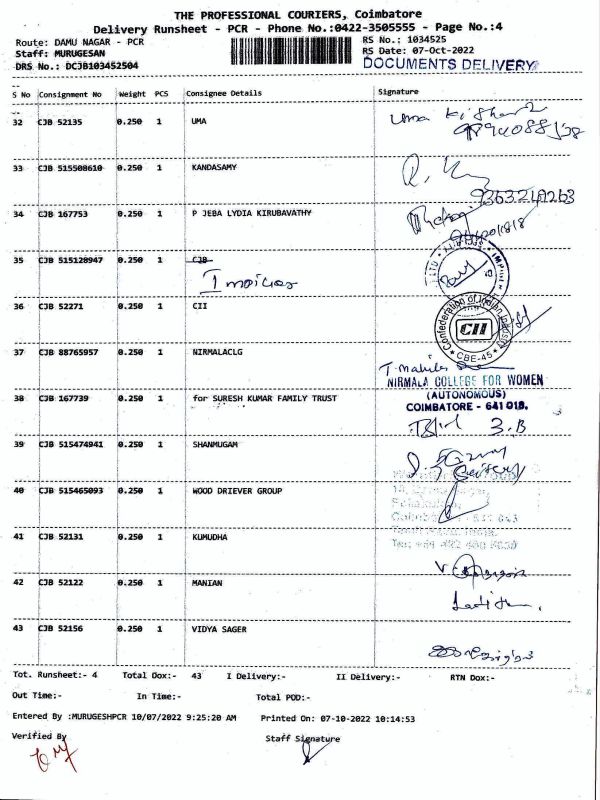 THE PROFESSIONAL COURIERS, Coimbatore
Delivery Runsheet - PCR - Phone No.:0422-3505555 - Page No.:4
Route: DAMU NAGAR - PCR
RS No.: 1034525
Staff: MURUGESAN
RS Date: 07-Oct-2022
DRS No.: DCJB103452504
DOCUMENTS DELIVERY
S No Consignment No Weight PCS Consignee Details Signature
32 CJB 52135 0.250 1 UMA
33 CJB 515508610 0.250 1 KANDASAMY
34 CJB 167753 0.250 1 P JEBA LYDIA KIRUBAVATHY
35 CJB 515128947 0.250 1 CJB
36 CJB 52271 0.250 1 CII
Confederation of Indian Industry
CII
CBE-45
37 CJB 88765957 0.250 1 NIRMALACLG
NIRMALA COLLEGE FOR WOMEN
(AUTONOMOUS)
COIMBATORE - 641 018.
38 CJB 167739 0.250 1 for SURESH KUMAR FAMILY TRUST
3.B
39 CJB 515474941 0.250 1 SHANMUGAM
40 CJB 515465093 0.250 1 WOOD DRIEVER GROUP
41 CJB 52131 0.250 1 KUMUDHA
42 CJB 52122 0.250 1 MANIAN
43 CJB 52156 0.250 1 VIDYA SAGER
Tot. Runsheet:- 4 Total Dox:- 43 I Delivery:- II Delivery:- RTN Dox:-
Out Time:- In Time:- Total POD:-
Entered By :MURUGESHPCR 10/07/2022 9:25:20 AM Printed On: 07-10-2022 10:14:53
Verified By Staff Signature